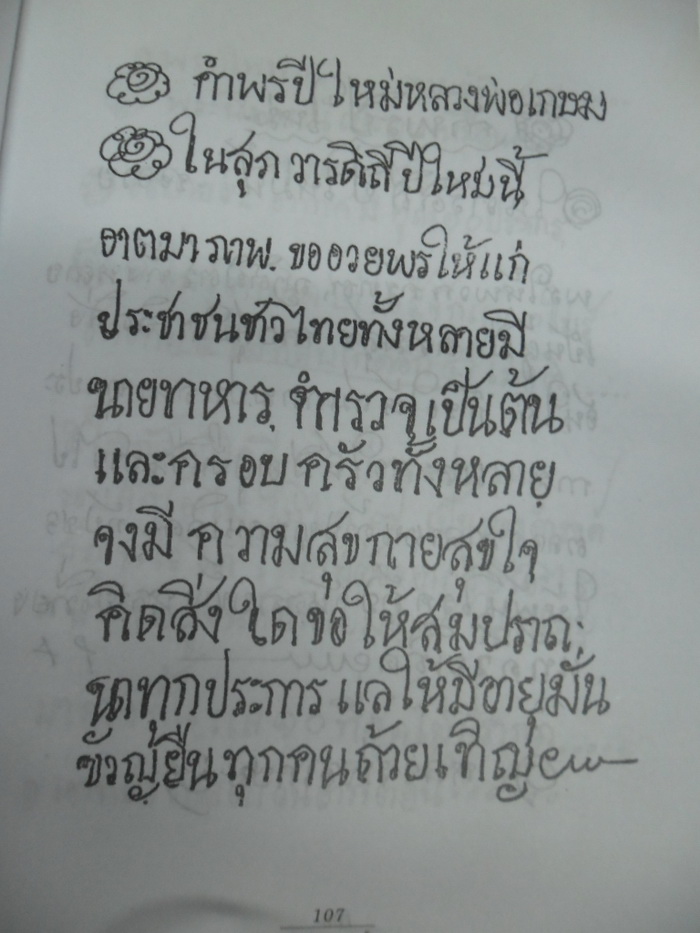 คำพรปีใหม่หลวงพ่อเกษม
ในสุภวารดิถีปีใหม่นี้
อาตมาภาพ. ขออวยพรให้แก่
ประชาชนชัวไทยทั้งหลายมี
นายทาหาร. ตำรวจ เป็นต้น
และครอบครัวทั้งหลาย
จงมีความสุขกายสุขใจ
คิดสิ่งใดขอให้สมปราถ.
นาทุกประการ แลให้มีอายุมั่น
ขัวญยืนทุกคนด้วยเทิญ
107